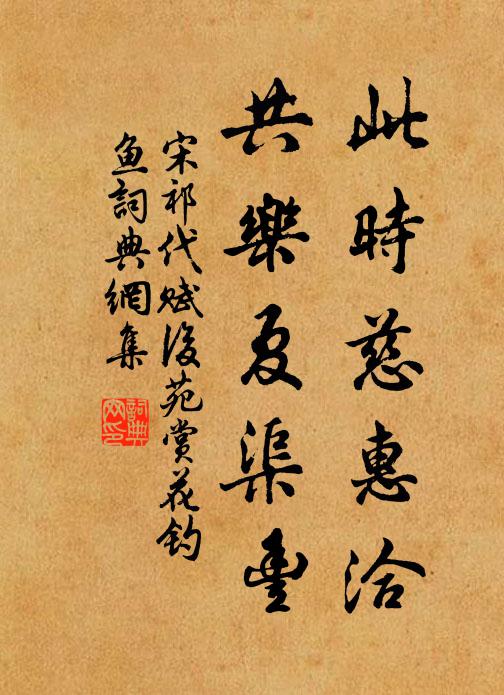 此時慈惠洽
共樂夏渠豐
宋祁代賦後苑賞花釣
魚詞典網集
詞典
网印